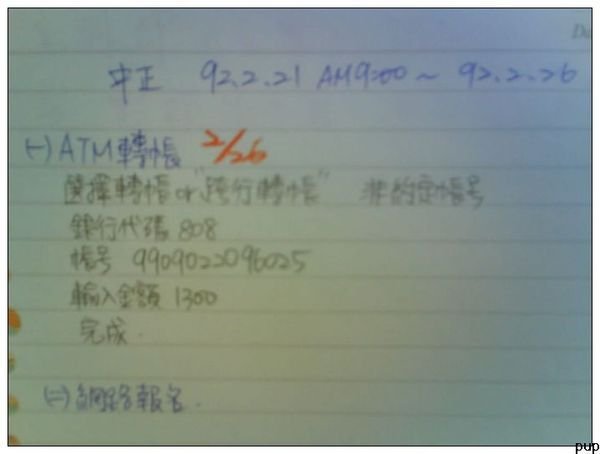 中正 92.2.21 AM9:00 ~ 92.2.26
(一) ATM轉帳 2/26
選擇轉帳 or "跨行轉帳" 非約定帳号
銀行代碼 808
帳号 9909022096025
輸入金額 1300
完成.
(二) 網路報名.
pup